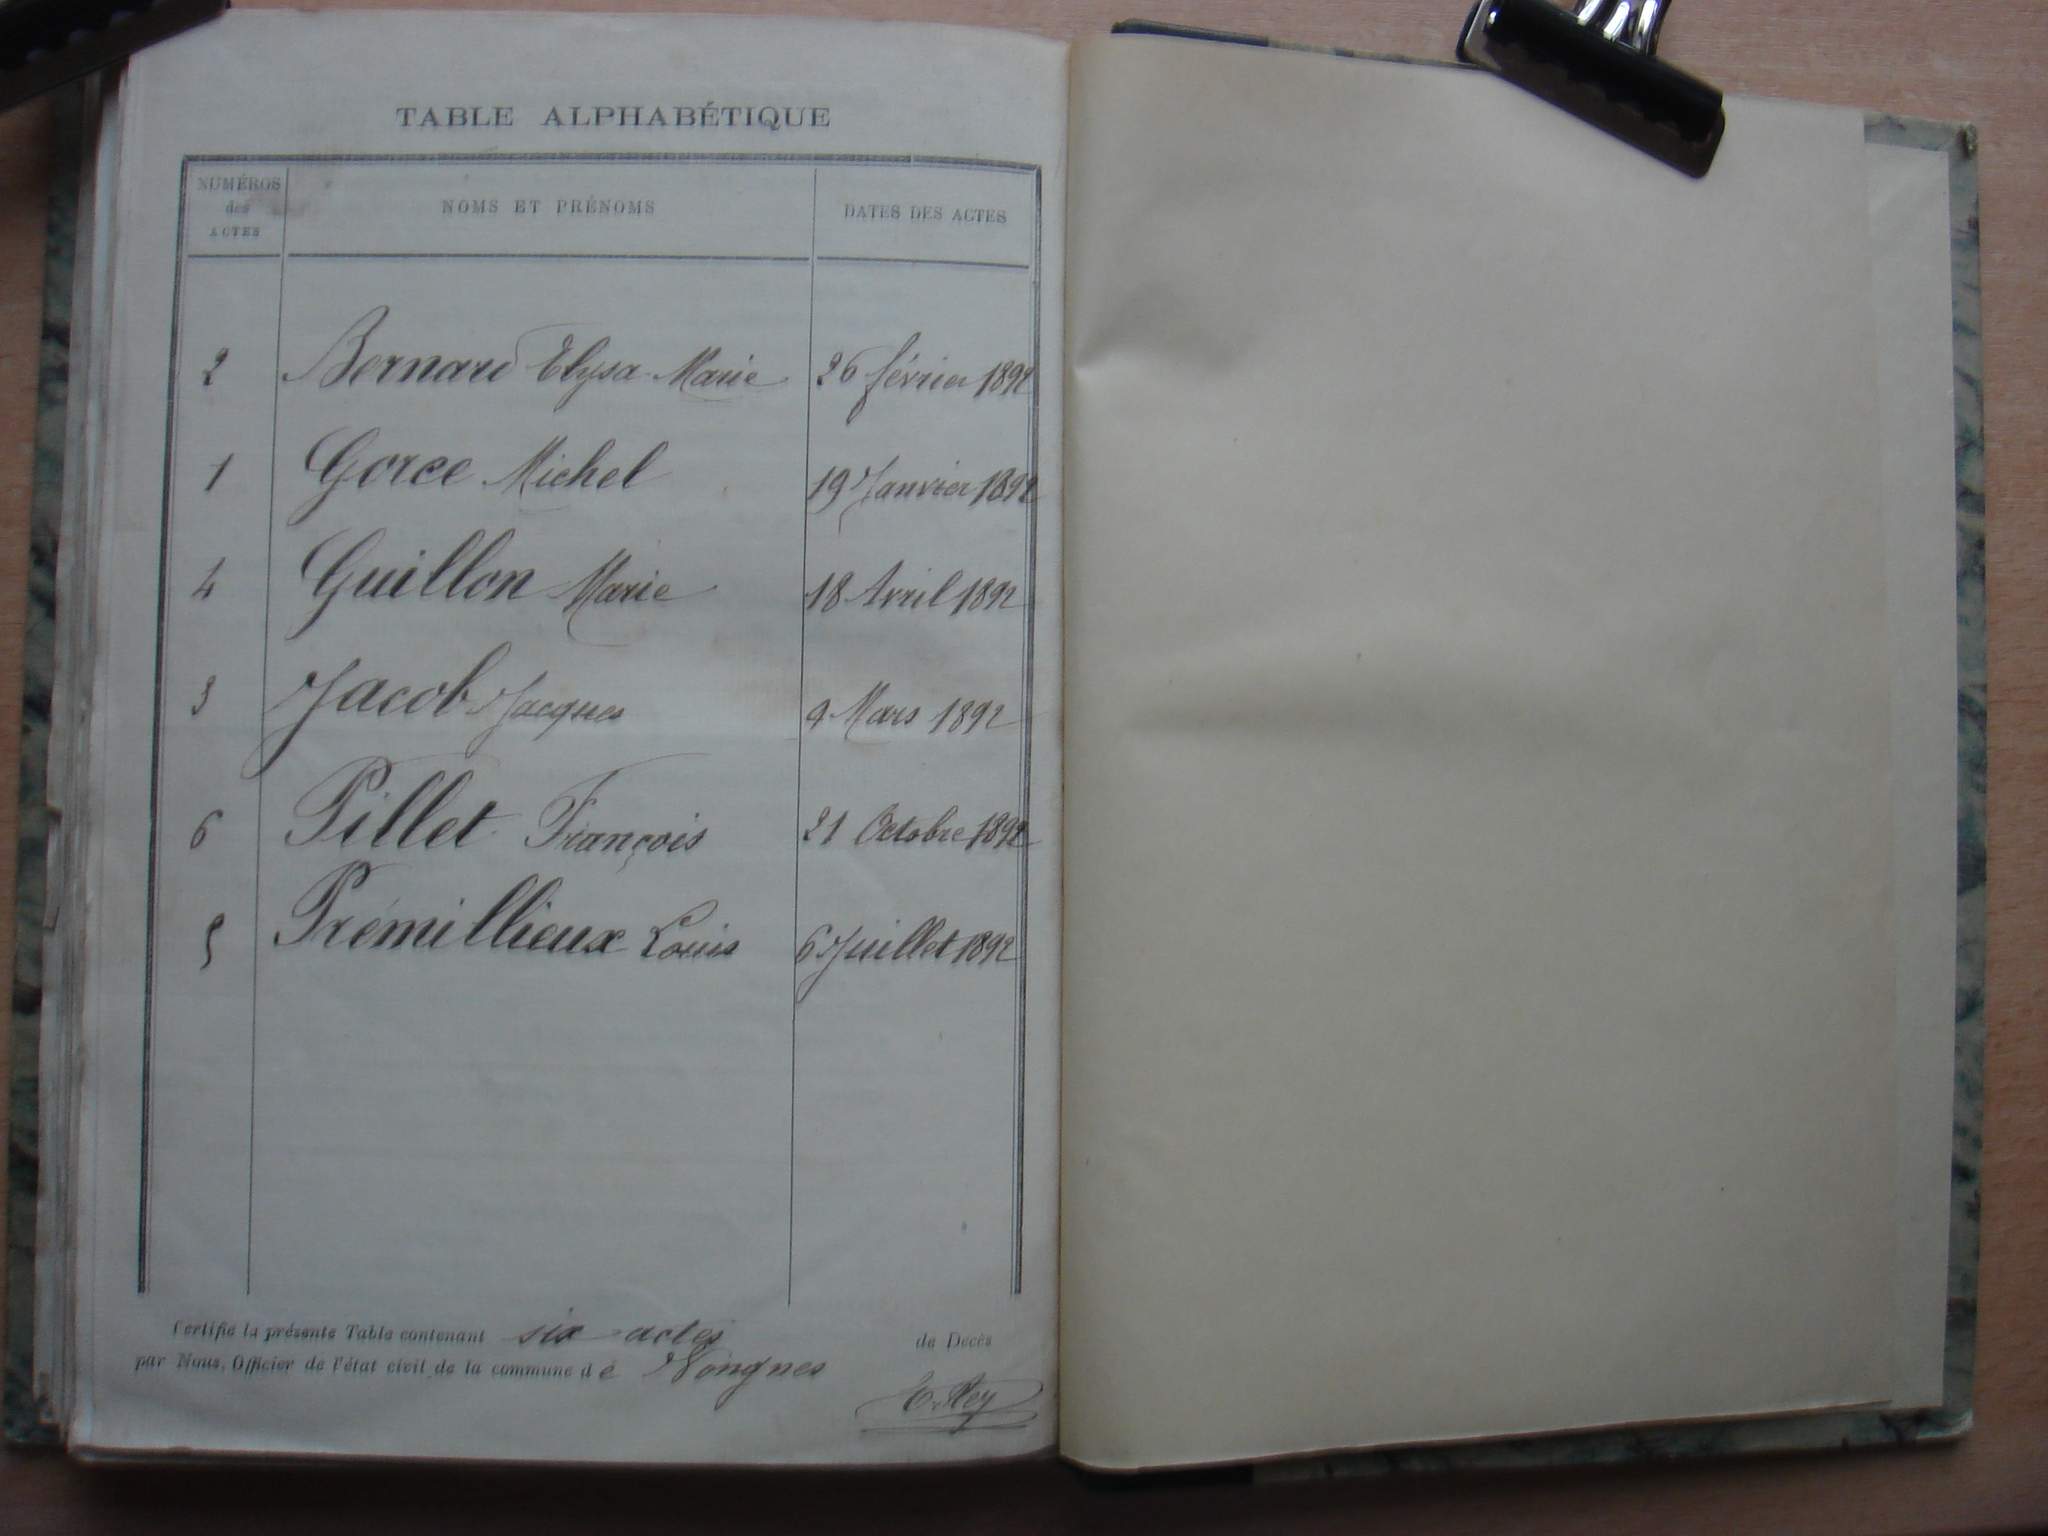 TABLE ALPHABÉTIQUE
NUMÉROS des ACTES NOMS ET PRÉNOMS DATES DES ACTES
2 Bernard Elysa Marie 26 février 1892
1 Gorce Michel 19 Janvier 1892
4 Guillon Marie 18 Avril 1892
3 Jacob Jacques 9 Mars 1892
6 Pillet François 21 Octobre 1892
5 Prémillieux Louis 6 Juillet 1892
Certifié la présente Table contenant six actes de Décès
par Nous, Officier de l'état civil de la commune de Vongnes
E. Rey